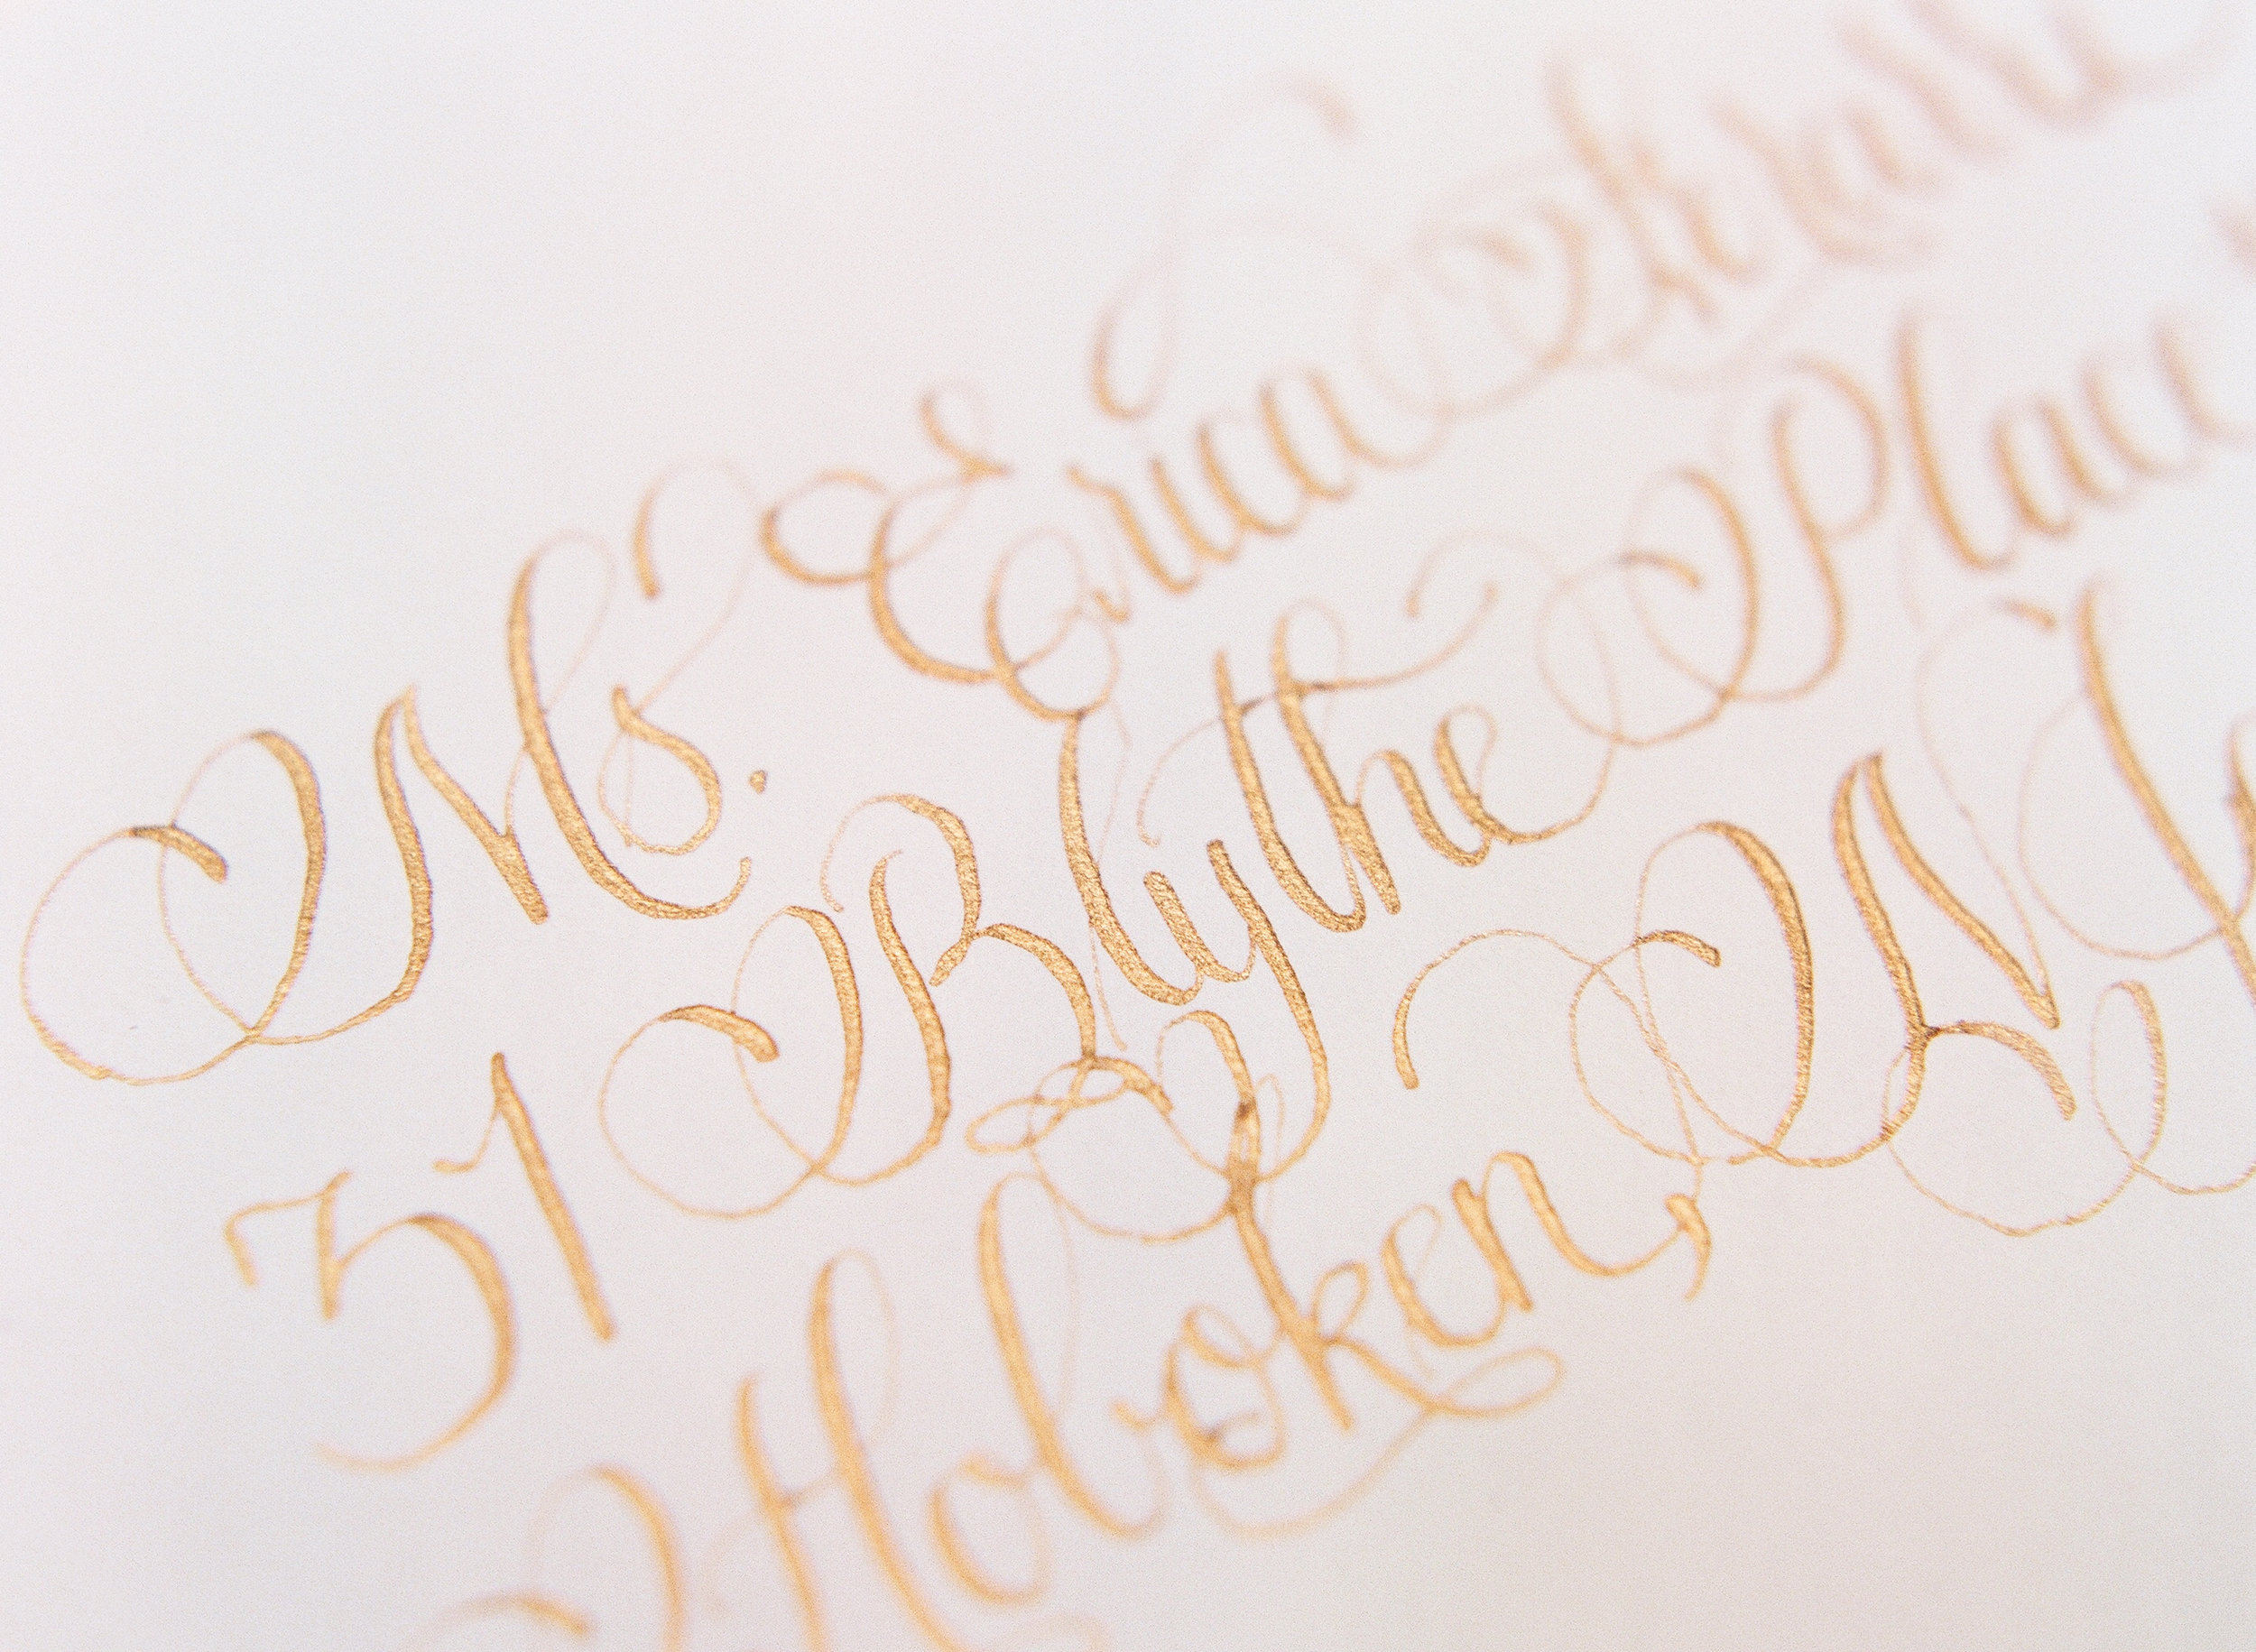 Ms. Erica
31 Blythe Place
Hoboken, N